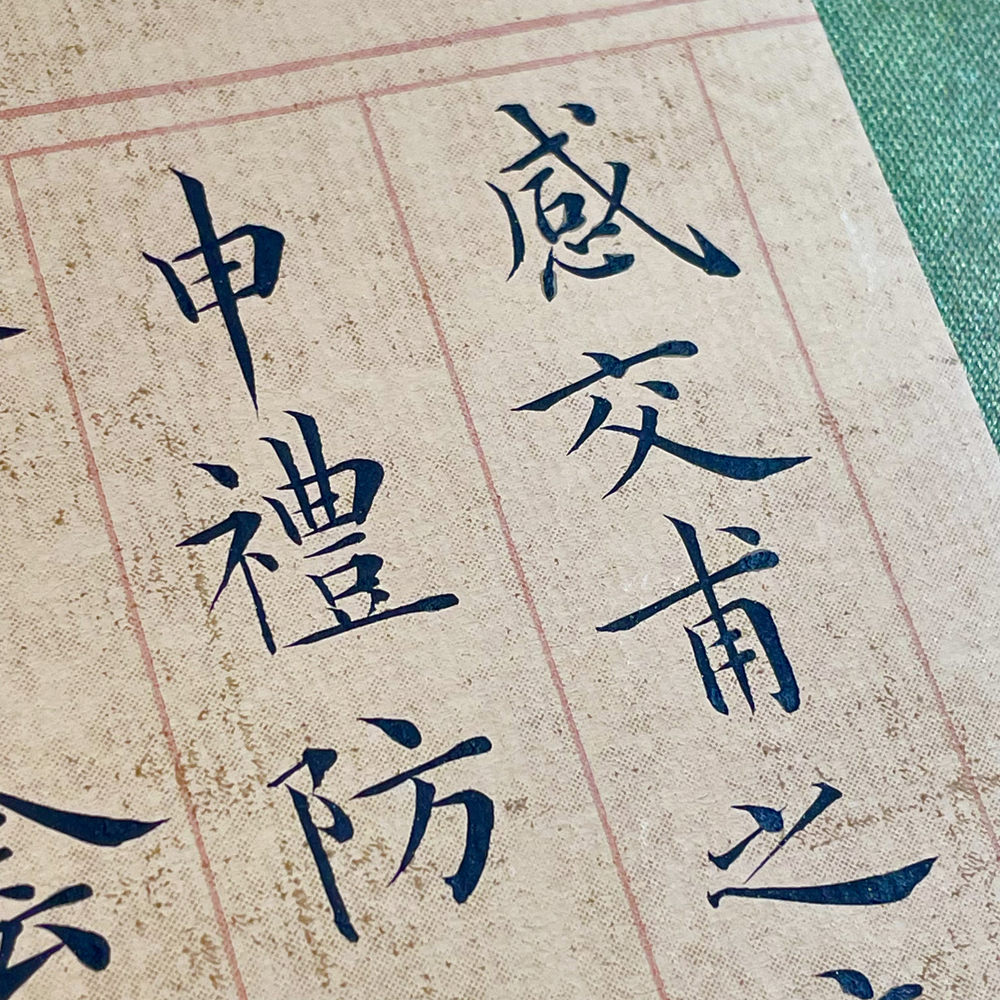 感交甫之
申禮防